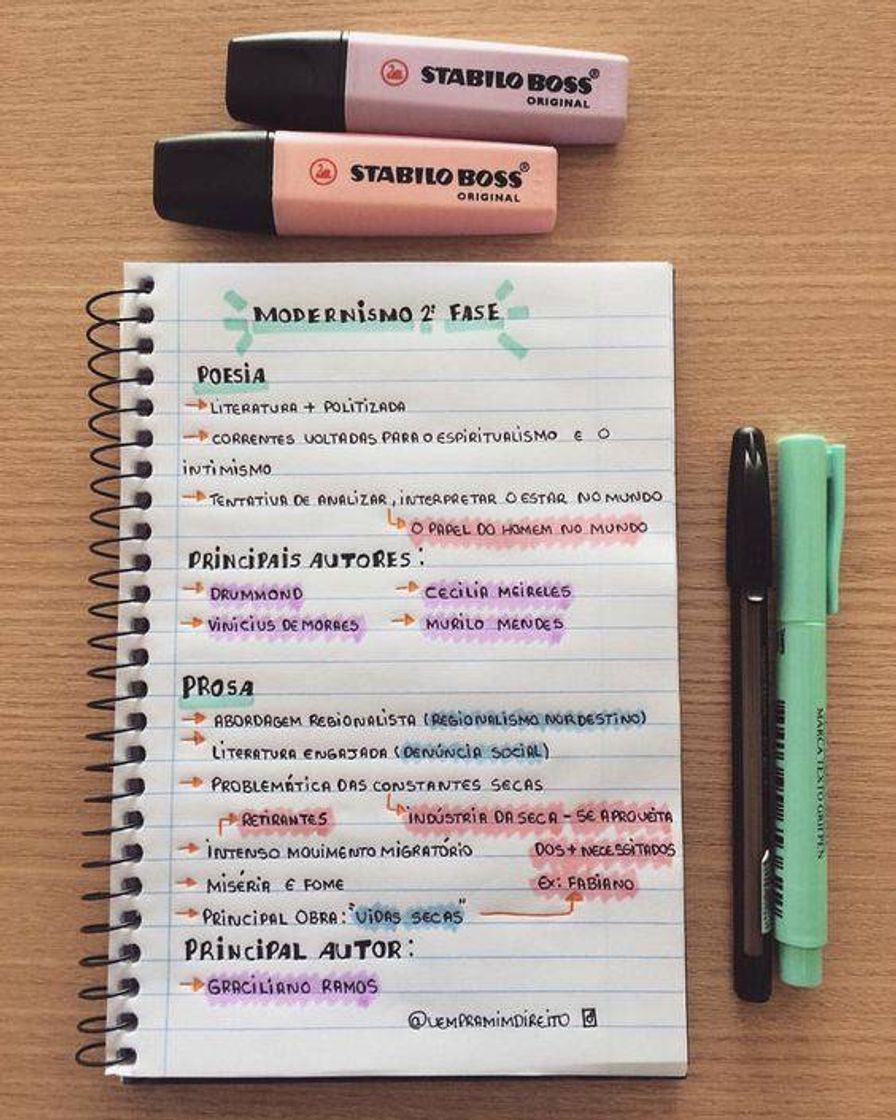 STABILO BOSS®
ORIGINAL
STABILO BOSS®
ORIGINAL
MODERNISMO 2ª FASE
POESIA
→ LITERATURA + POLITIZADA
→ CORRENTES VOLTADAS PARA O ESPIRITUALISMO E O
INTIMISMO
→ TENTATIVA DE ANALIZAR, INTERPRETAR O ESTAR NO MUNDO
↳ O PAPEL DO HOMEM NO MUNDO
PRINCIPAIS AUTORES:
→ DRUMMOND → CECÍLIA MEIRELES
→ VINÍCIUS DE MORAES → MURILO MENDES
PROSA
→ ABORDAGEM REGIONALISTA (REGIONALISMO NORDESTINO)
→ LITERATURA ENGAJADA (DENÚNCIA SOCIAL)
→ PROBLEMÁTICA DAS CONSTANTES SECAS
RETIRANTES INDÚSTRIA DA SECA - SE APROVEITA
→ INTENSO MOVIMENTO MIGRATÓRIO DOS + NECESSITADOS
→ MISÉRIA E FOME EX: FABIANO
→ PRINCIPAL OBRA: "VIDAS SECAS"
PRINCIPAL AUTOR:
→ GRACILIANO RAMOS
@VEMPRAMIMDIREITO
MARCA TEXTO GRIFPEN